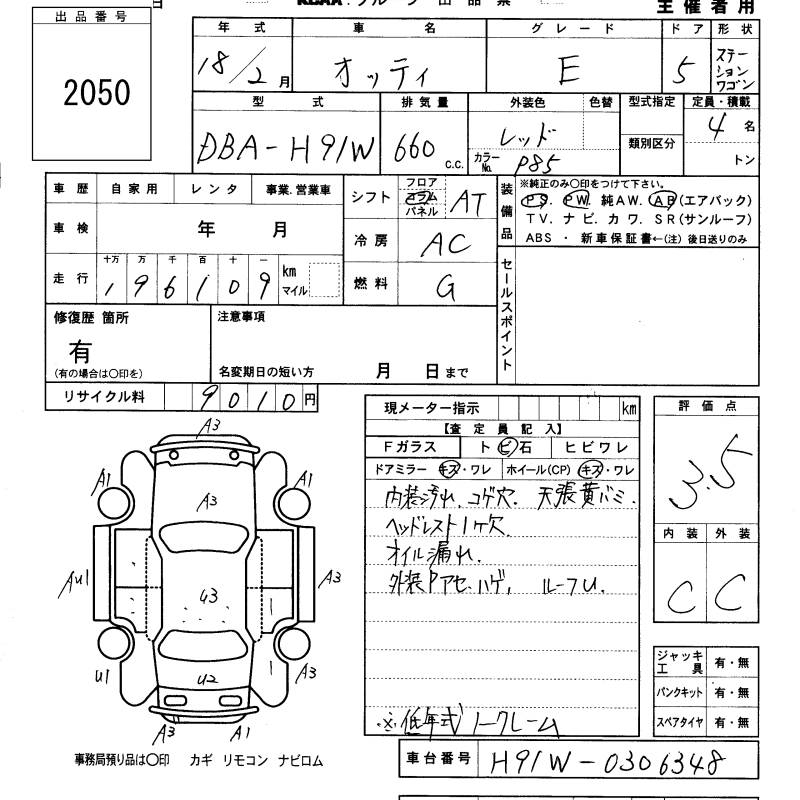 主催者用
出品番号
2050
年式 車名 グレード ドア 形状
18/2月 オッティ E 5 ステーションワゴン
型式 排気量 外装色 色替 型式指定 定員・積載
DBA-H91W 660 c.c. レッド カラーNo. P85 類別区分 4名 トン
車歴 自家用 レンタ 事業.営業車 シフト フロア コラム パネル AT
車検 年 月 冷房 AC
走行 十万 万 千 百 十 一
196109 km マイル 燃料 G
装備品 ※純正のみ〇印をつけて下さい。
PS. PW. 純AW. AB(エアバック)
TV. ナビ. カワ. SR(サンルーフ)
ABS ・ 新車保証書←(注) 後日送りのみ
セールスポイント
修復歴 箇所 注意事項
有
(有の場合は〇印を) 名変期日の短い方 月 日まで
リサイクル料 9010円
現メーター指示 km
【査定員記入】
Fガラス トビ石 ヒビワレ
ドアミラー キズ・ワレ ホイール(CP) キズ・ワレ
内装汚れ. コゲ穴. 天張黄バミ.
ヘッドレスト1ヶ穴.
オイル漏れ.
外装Pアセ.ハゲ, ルーフU.
※低年式ノークレーム
評価点
3.5
内装 外装
C C
ジャッキ工具 有・無
パンクキット 有・無
スペアタイヤ 有・無
車台番号 H91W-0306348
A3
A1 A3 A1
AU1 U3 A3
U1 U2 A3
A3 A1
事務局預り品は〇印 カギ リモコン ナビロム